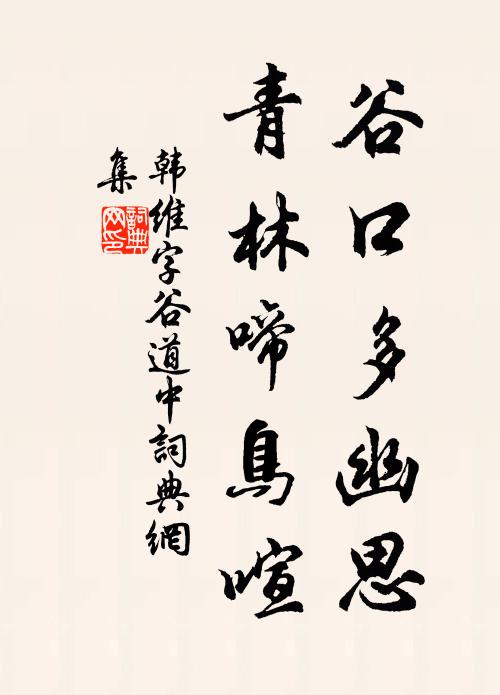 谷口多幽思
青林啼鳥喧
韩維字谷道中詞典網
集
詞典
网印